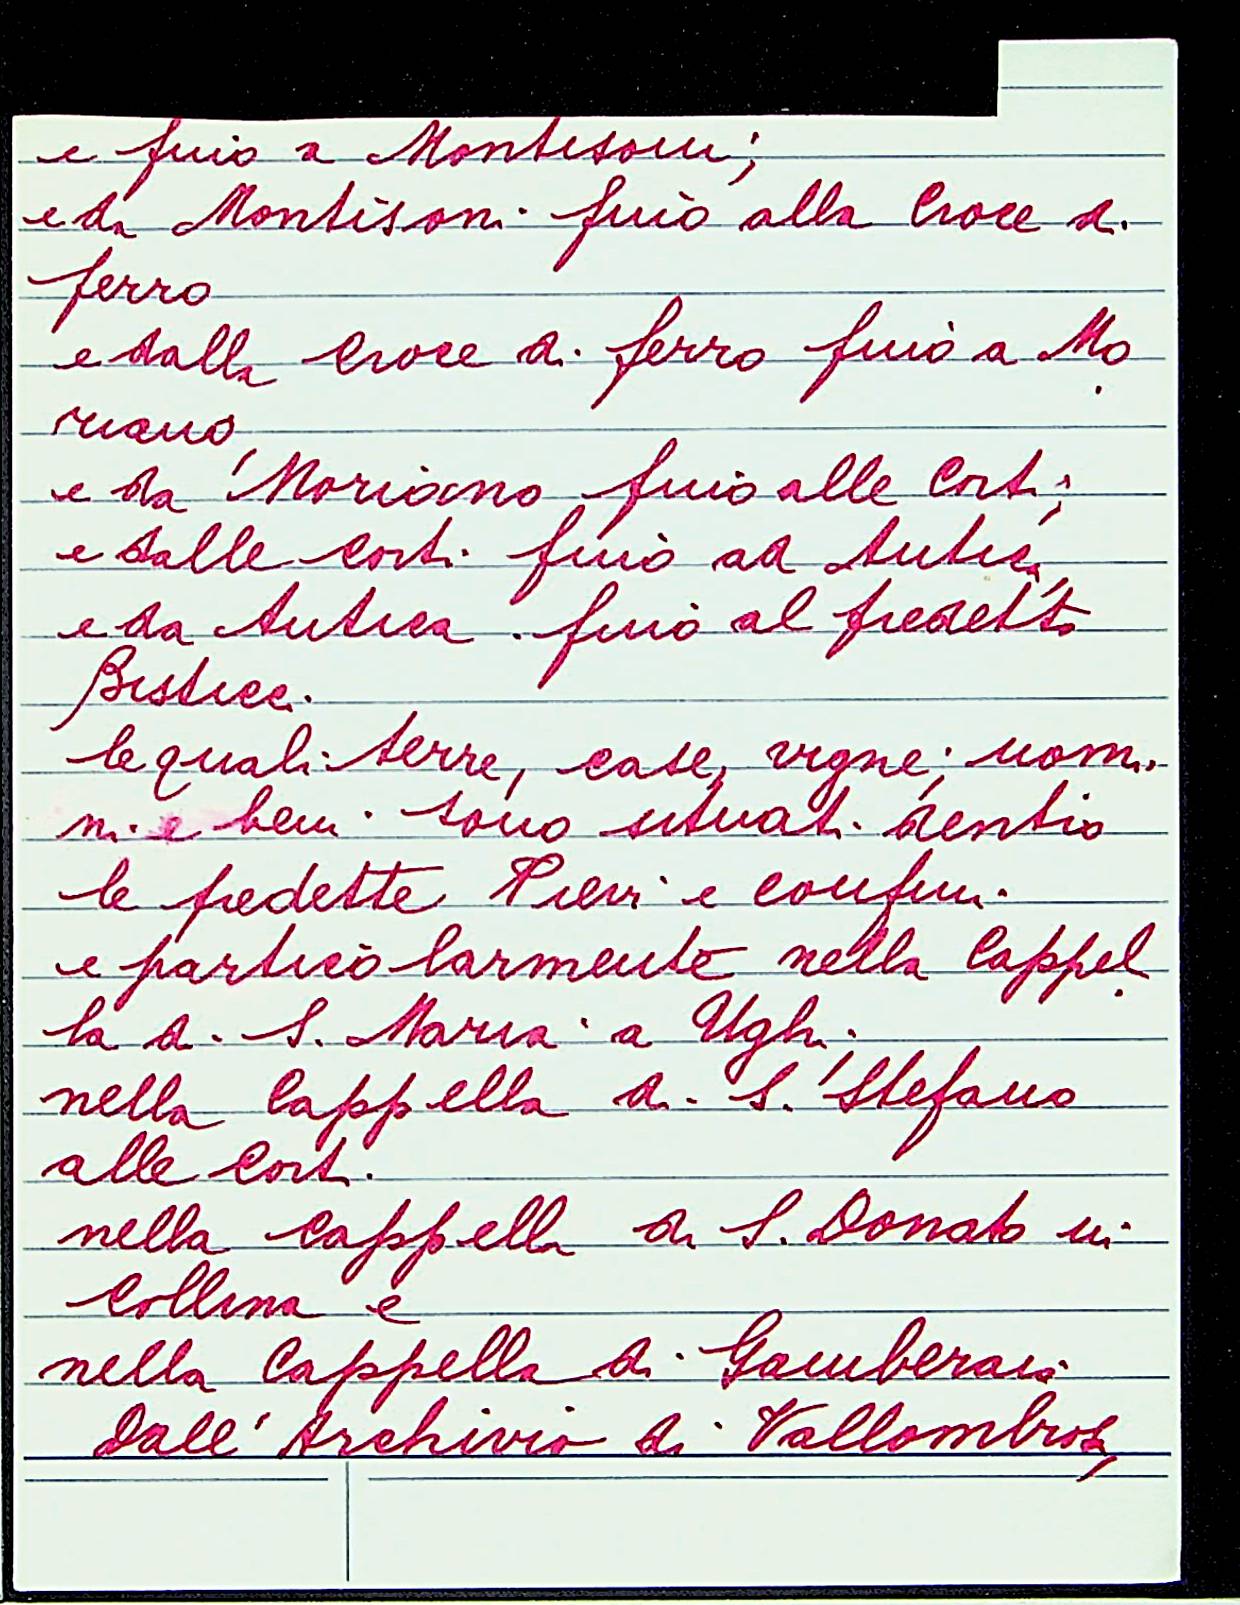 e fino a Montisoni;
e da Montisoni fino alla Croce di
ferro
e dalla Croce di ferro fino a Mo
riano,
e da Moriano fino alle Corti;
e dalle Corti fino ad Antica,
e da Antica fino al predetto
Bisticci.
le quali terre, case, vigne, uomi
ni e beni sono situati dentro
le predette Pievi e confini
e particolarmente nella Cappel
la di S. Maria a Ughi.
nella Cappella di S. Stefano
alle Corti.
nella Cappella di S. Donato in
Collina e
nella Cappella di Gamberaia
Dall'Archivio di Vallombrosa,